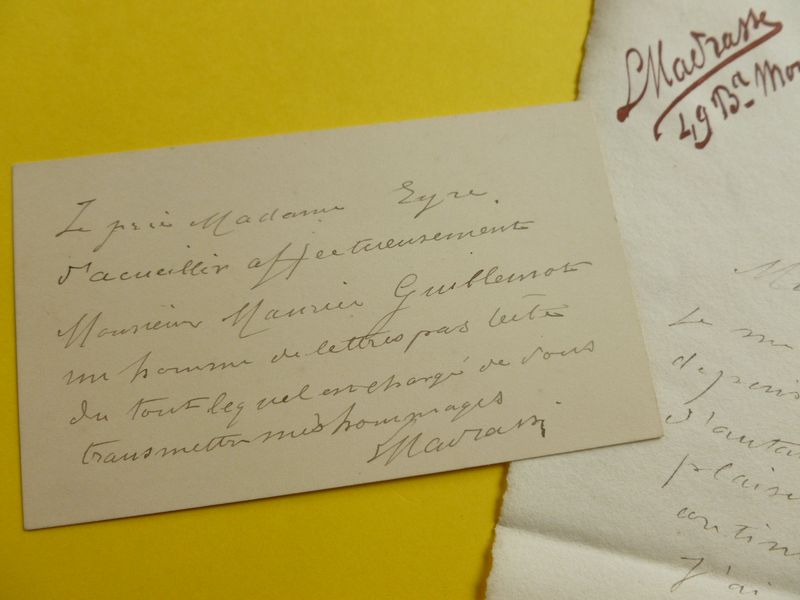 Je prie Madame Eyre
d'acueillir affectueusement
Monsieur Maurice Guillemot
un homme de lettres pas bête
du tout lequel est chargé de vous
transmettre mes hommages
LMadrassi
LMadrassi
49 Bd Mon
M
Je me
depuis
d'auta
plaisi
J'ai